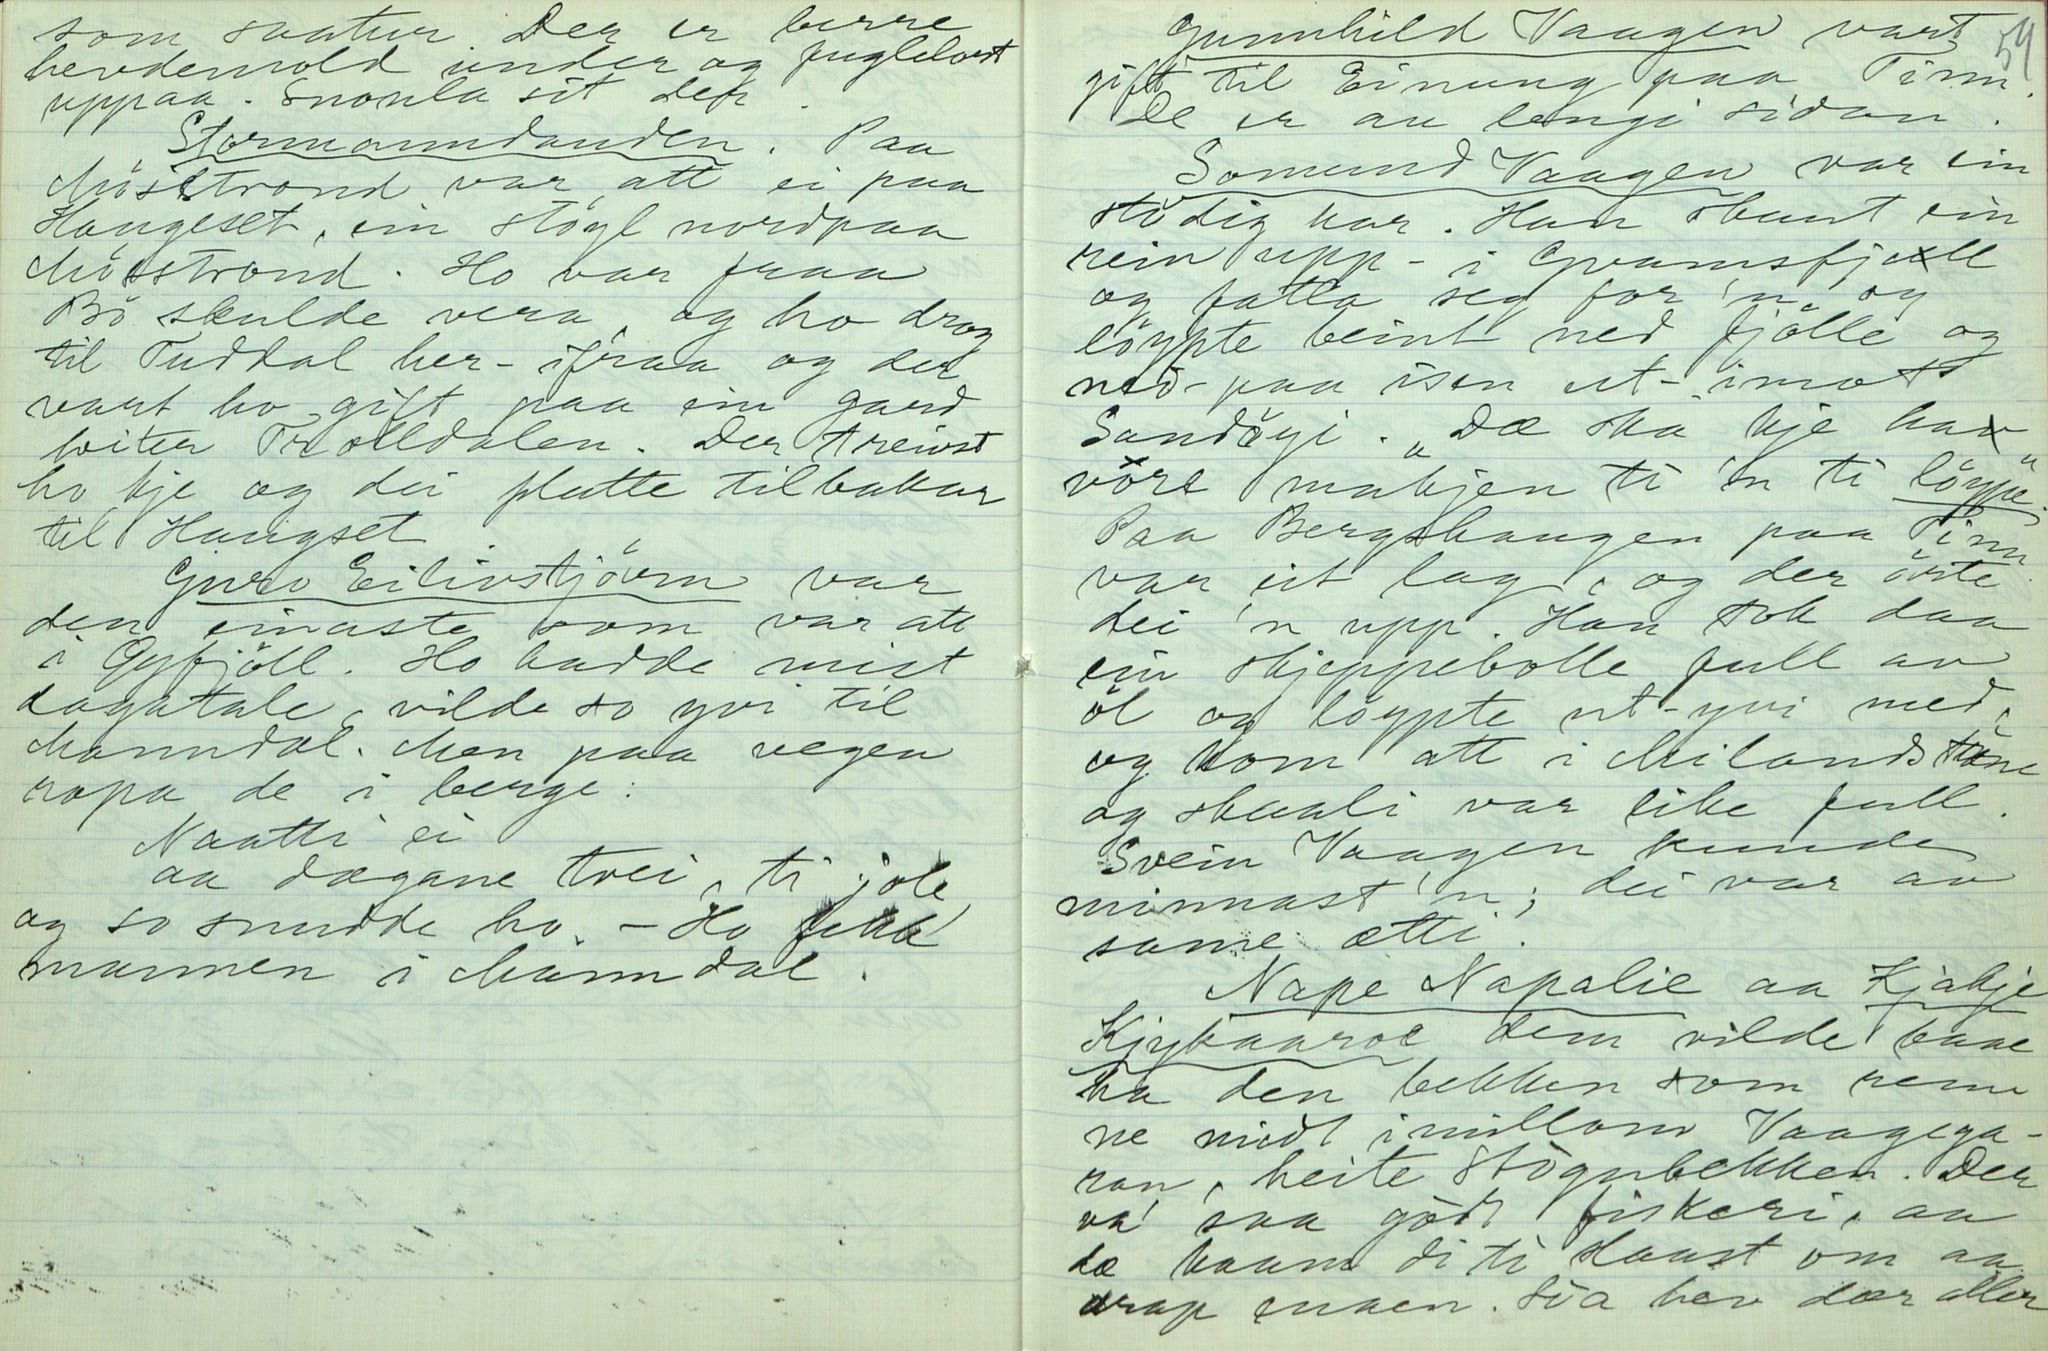 som saatur Der er berre
hevdemold under og fuglelort
uppaa. Snorula sit der.
Stormanndauden. Paa
Mösstrond var att ei paa
Haugeset, ein stöyl nordpaa
Mösstrond. Ho var fraa
Bö skulde vera, og ho drog
til Tuddal her-ifraa og der
vart ho gift paa ein gard
heiter Trolldalen. Der treivst
ho kje og dei flutte tilbakar
til Haugset.
Guro Eilivstjövn var
den einaste som var att
i Öyfjöll. Ho hadde mist
dagatale, vilde so yvi til
Manndal. Men paa vegen
ropa de i berge:
Naatti ei
aa dagane trei, ti jole,
og so snudde ho. - Ho fekk
mannen i Manndal.
54
Gunnhild Vaagen vart
gift til Einung paa Tinn.
De er au lengi sidan.
Somund Vaagen var ein
stödig kar. Han skaut ein
rein upp-i Gvamsfjell
og fatta seg for 'n, og
löypte beint ned fjölle og
ned-paa isen ut-imott
Sandöyi. „Dæ ska kje ha
vöre makjen ti 'n ti löype."
Paa Bergshaugen paa Tinn
var eit lag, og der örte
dei 'n upp. Han tok daa
ein skjeppebolle full av
öl og löypte ut-yvi med,
og kom att i Milandstune
og skaali var like full.
Svein Vaagen kunde
minnast 'n; dei var av
same ætti.
Nape Napalie aa Kjakje
Kjykaaroe dem vilde baae
ha den bekken som renn
ne midt imillom Vaagega-
ran, heite Stögubekken. Der
va' saa godt fiskeri, aa
dæ kaam di ti Haast om aa
drap einaen. Sia hev dær aller